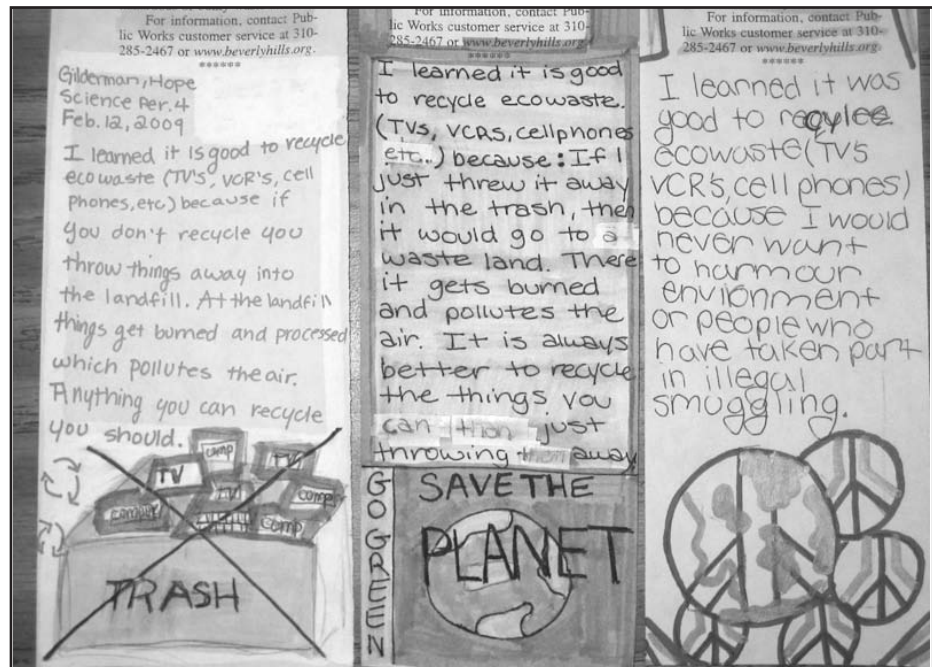 For information, contact Pub-
lic Works customer service at 310-
285-2467 or www.beverlyhills.org.
******
Gilderman, Hope
Science Per. 4
Feb. 12, 2009
I learned it is good to recycle
ecowaste (TV's, VCR's, cell
Phones, etc) because if
you don't recycle you
throw things away into
the landfill. At the landfill
things get burned and processed
which pollutes the air.
Anything you can recycle
you should.
comp
TV
TV
TV
comp
comp
comp
TRASH
For information, contact Pub-
lic Works customer service at 310-
285-2467 or www.beverlyhills.org.
I learned it is good
to recycle ecowaste.
(TVs, VCRs, cellphones
etc..) because: If I
just threw it away
in the trash, then
it would go to a
waste land. There
it gets burned
and pollutes the
air. It is always
better to recycle
the things you
can than just
throwing them away
GO GREEN
SAVE THE
PLANET
For information, contact Pub-
lic Works customer service at 310-
285-2467 or www.beverlyhills.org.
******
I learned it was
good to recycle
ecowaste (TV's
VCR's, cell phones)
because I would
never want
to harm our
envionment
or people who
have taken part
in illegal
smuggling.